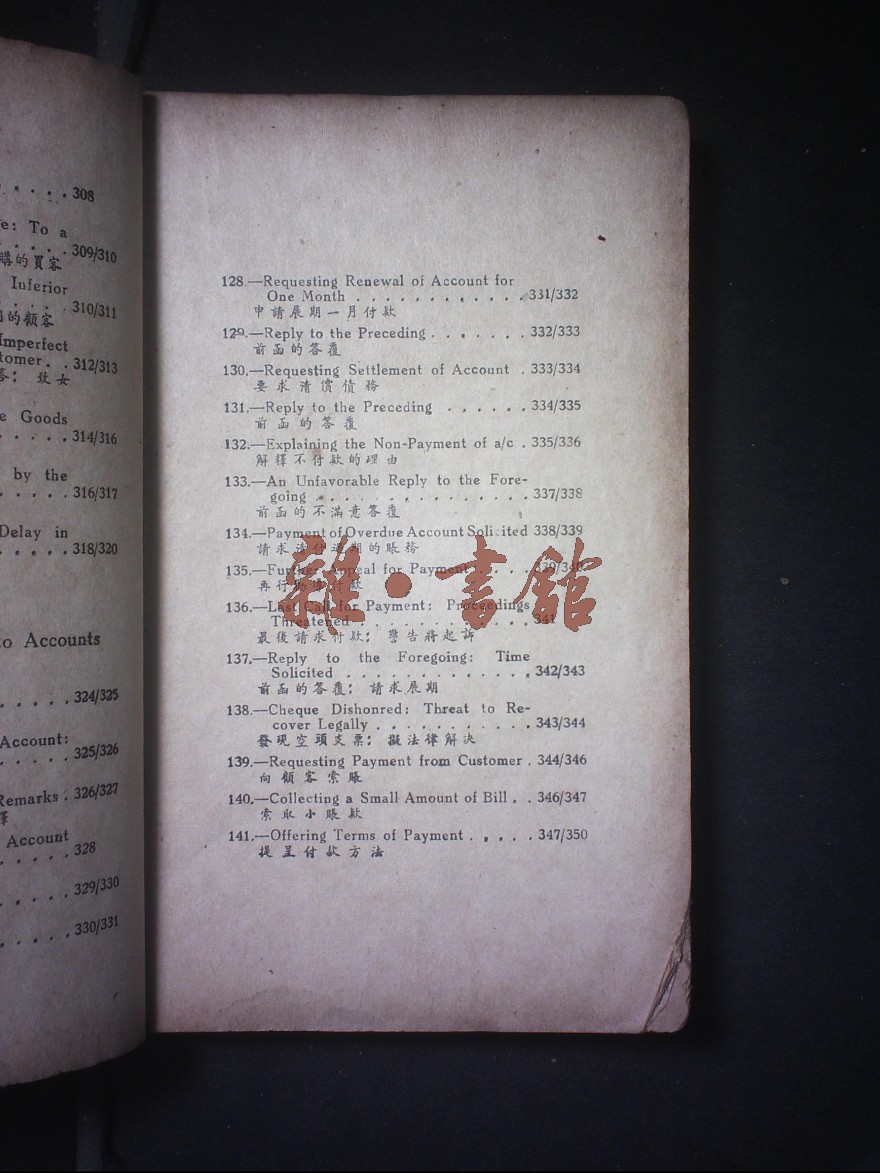 . . . . 308
e: To a
. . . . . 309/310
購的買客
Inferior
. . . . 310/311
的顧客
Imperfect
tomer. . 312/313
答: 致女
e Goods
. . . . . 314/316
by the
. . . . . 316/317
Delay in
. . . . . 318/320
to Accounts
. . . . . 324/325
Account:
. . . . . 325/326
Remarks . 326/327
釋
Account
. . . . . 328
. . . . . 329/330
. . . . . 330/331
128.—Requesting Renewal of Account for
One Month . . . . . . . . . . . . 331/332
申請展期一月付款
129.—Reply to the Preceding . . . . . . 332/333
前函的答覆
130.—Requesting Settlement of Account . 333/334
要求清償債務
131.—Reply to the Preceding . . . . . . 334/335
前函的答覆
132.—Explaining the Non-Payment of a/c . 335/336
解釋不付款的理由
133.—An Unfavorable Reply to the Fore-
going . . . . . . . . . . . . . . 337/338
前函的不滿意答覆
134.—Payment of Overdue Account Solicited 338/339
請求清付過期的賬務
135.—Further Appeal for Payment . . . . 339/340
再行 付款
136.—Last Call for Payment: Proceedings
Threatened . . . . . . . . . . . . 341
最後請求付款; 警告將起訴
137.—Reply to the Foregoing: Time
Solicited . . . . . . . . . . . . . 342/343
前函的答覆; 請求展期
138.—Cheque Dishonred: Threat to Re-
cover Legally . . . . . . . . . . . 343/344
發現空頭支票; 擬法律解決
139.—Requesting Payment from Customer . 344/346
向顧客索賬
140.—Collecting a Small Amount of Bill . . 346/347
索取小賬款
141.—Offering Terms of Payment . . . . . 347/350
提呈付款方法
雜·書館